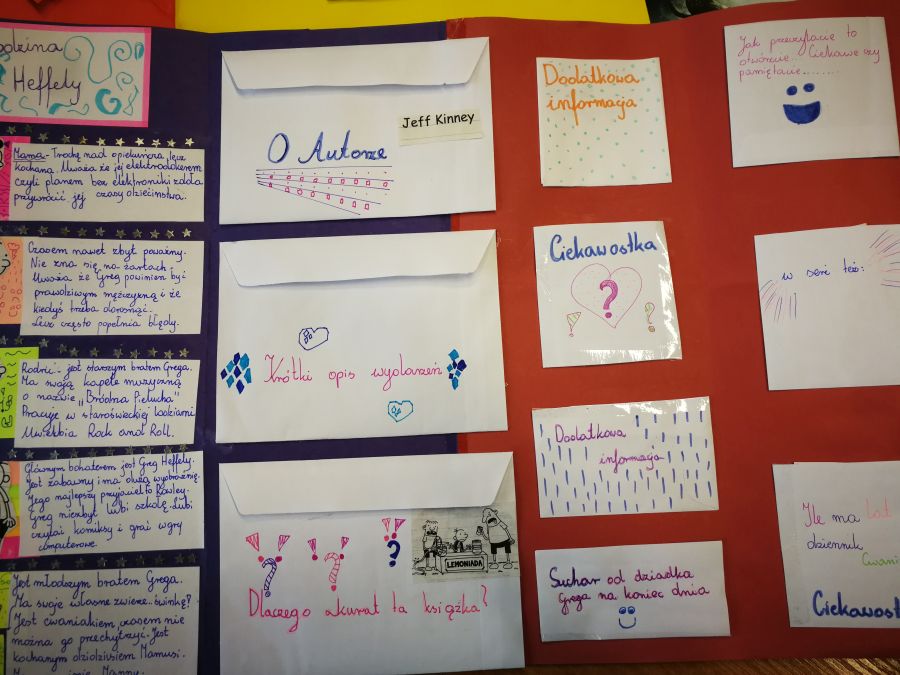 odzina
Heffely
Mama - Trochę nad opiekuńcza, lecz
kochana. Uważa że jej elektrodokerem
czyli planem bez elektroniki zdoła
przywrócić jej czasy dzieciństwa.
Czasem nawet zbyt poważny.
Nie zna się na żartach.
Uważa że Greg powinien być
prawdziwym mężczyzną i że
kiedyś trzeba dorosnąć.
Lecz często popełnia błędy.
Rodric - jest starszym bratem Grega.
Ma swoją kapelę muzyczną
o nazwie "Bródna Pielucha"
Pracuje w staroświeckiej lodziarni
Uwielbia Rock and Roll.
Głównym bohaterem jest Greg Heffely.
Jest zabawny i ma dużą wyobraźnię.
Jego najlepszy przyjaciel to Rowley.
Greg niezbyt lubi szkołę, lubi
czytać komiksy i grać w gry
komputerowe.
Jest młodszym bratem Grega.
Ma swoje własne zwierze.. świnkę?
Jest cwaniakiem, czasem nie
można go przechytrzyć. Jest
kochanym dzidziusiem Mamusi.
Manny
O Autorze
Jeff Kinney
Krótki opis wydarzeń
LEMONIADA
Dlaczego akurat ta książka?
Dodatkowa
informacja
Ciekawostka
?
Dodatkowa
informacja
Suchar od dziadka
Grega na koniec dnia
Jak przeczytacie to
otwórzcie... Ciekawe czy
pamiętacie........
w serii też:
Ile ma lat
dziennik
Cwani
Ciekawost